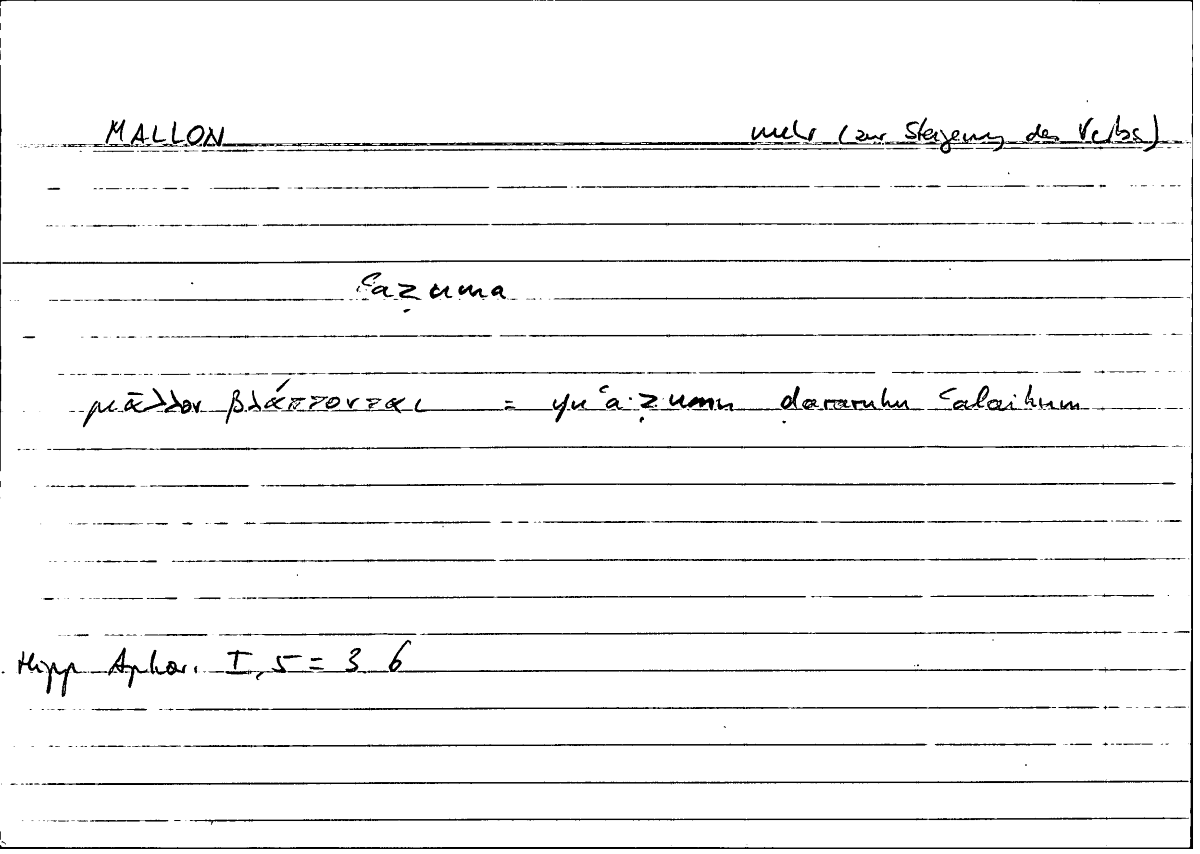 MALLON mehr (zur Steigerung des Verbs)
ʿaẓuma
μᾶλλον βλάπτονται = yuʿaẓẓumu ḍararuhu ʿalaihum
Hipp Aphor. I, 5 = 3 6